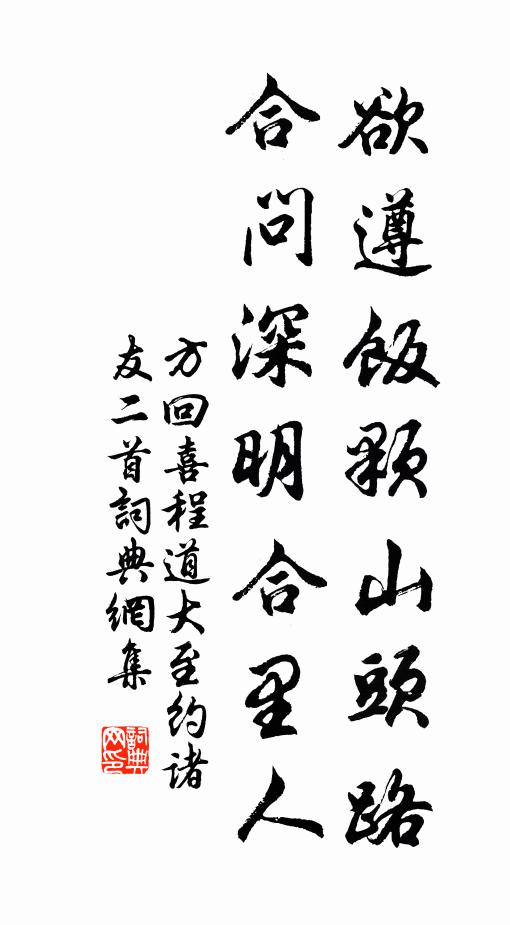 欲遵飯顆山頭路
合問深明合里人
方回喜程道大至約諸
友二首詞典網集
詞典网印